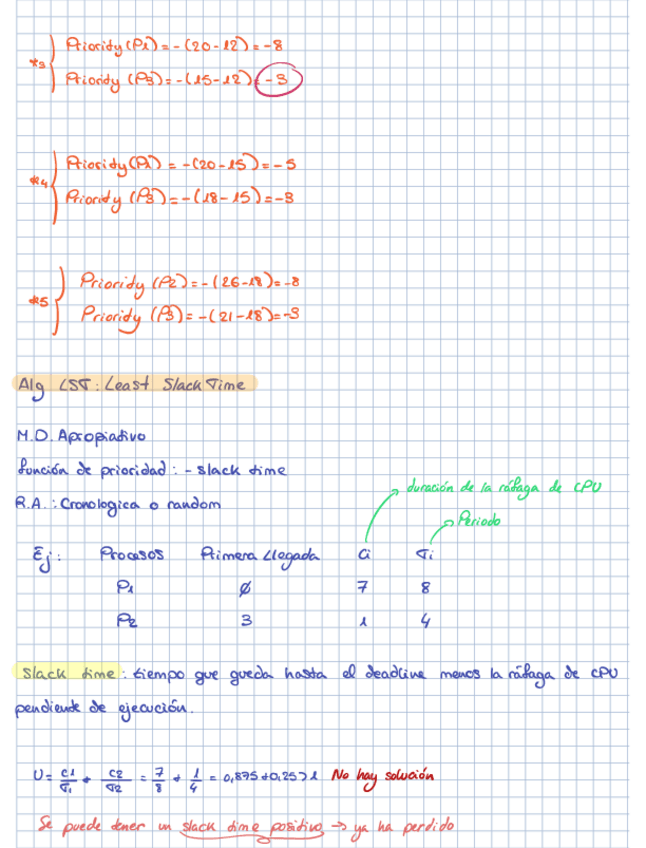 *3 Priority (P1) = -(20-12) = -8
Priority (P3) = -(15-12) = -3
*4 Priority (P2) = -(20-15) = -5
Priority (P3) = -(18-15) = -3
*5 Priority (P2) = -(26-18) = -8
Priority (P3) = -(21-18) = -3
Alg LST: Least Slack Time
M.D. Apropiativo
función de prioridad: - slack time
R.A.: Cronologica o random
duración de la ráfaga de CPU
Periodo
Ej: Procesos Primera Llegada Ci Ti
P1 Ø 7 8
P2 3 1 4
Slack time: tiempo que queda hasta el deadline menos la ráfaga de CPU
pendiente de ejecución.
U = C1/T1 + C2/T2 = 7/8 + 1/4 = 0,875+0,25>1 No hay solución
Se puede tener un slack time positivo → ya ha perdido